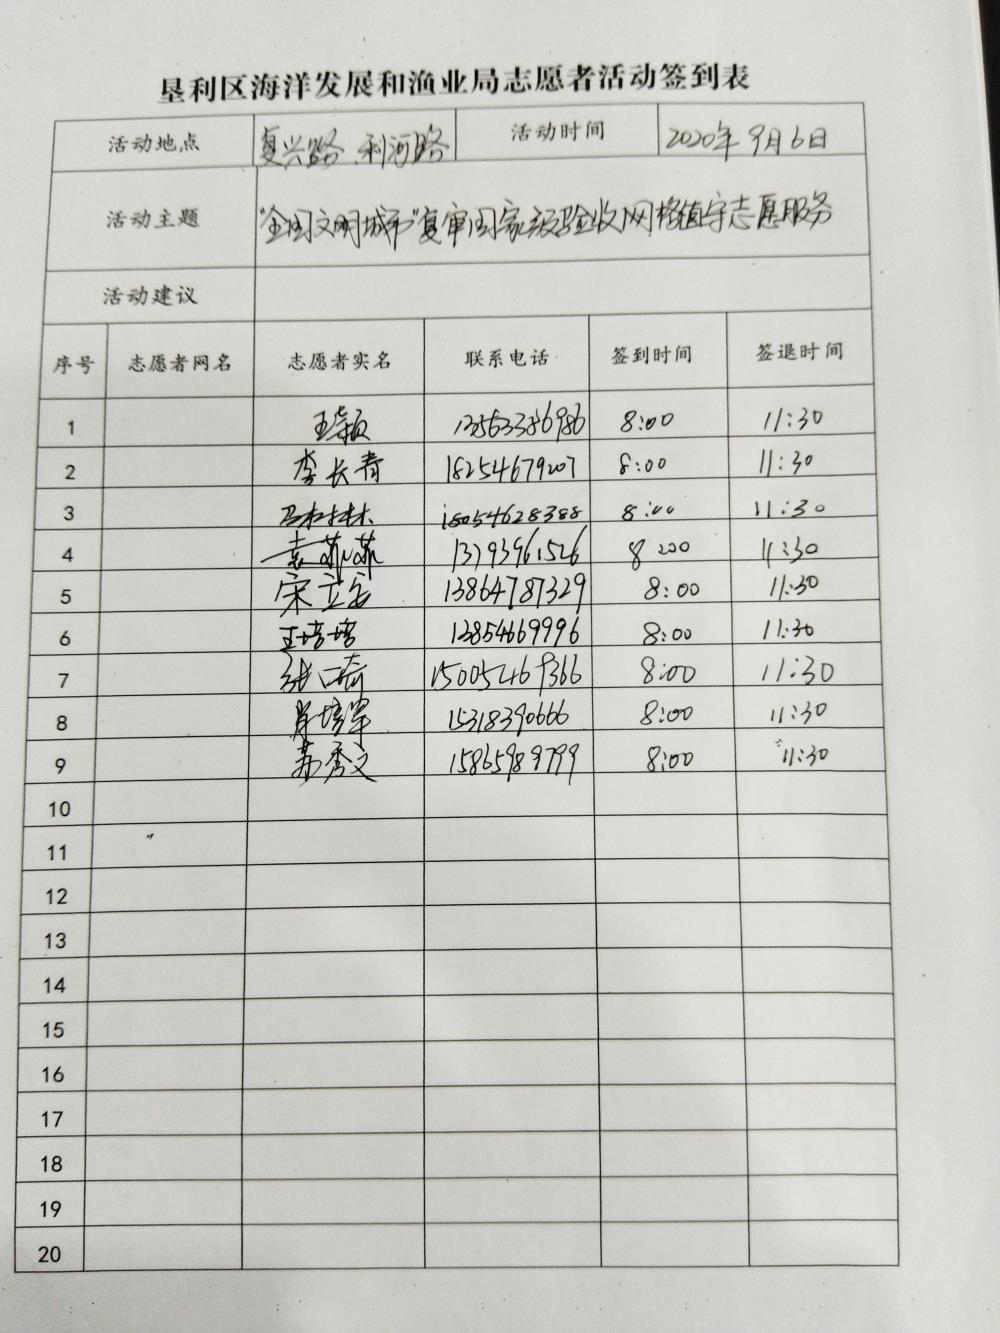 垦利区海洋发展和渔业局志愿者活动签到表
活动地点 复兴路 利河路 活动时间 2020年9月6日
活动主题 "全国文明城市"复审国家级验收网格值守志愿服务
活动建议
序号 志愿者网名 志愿者实名 联系电话 签到时间 签退时间
1 13563386986 8:00 11:30
2 李长青 18254679207 8:00 11:30
3 18054628388 8:00 11:30
4 袁苏苏 8:00 11:30
5 宋立安 13864787329 8:00 11:30
6 王培培 13854669996 8:00 11:30
7 15005469366 8:00 11:30
8 肖培军 15318390666 8:00 11:30
9 苏秀文 15865989799 8:00 11:30
10
11
12
13
14
15
16
17
18
19
20